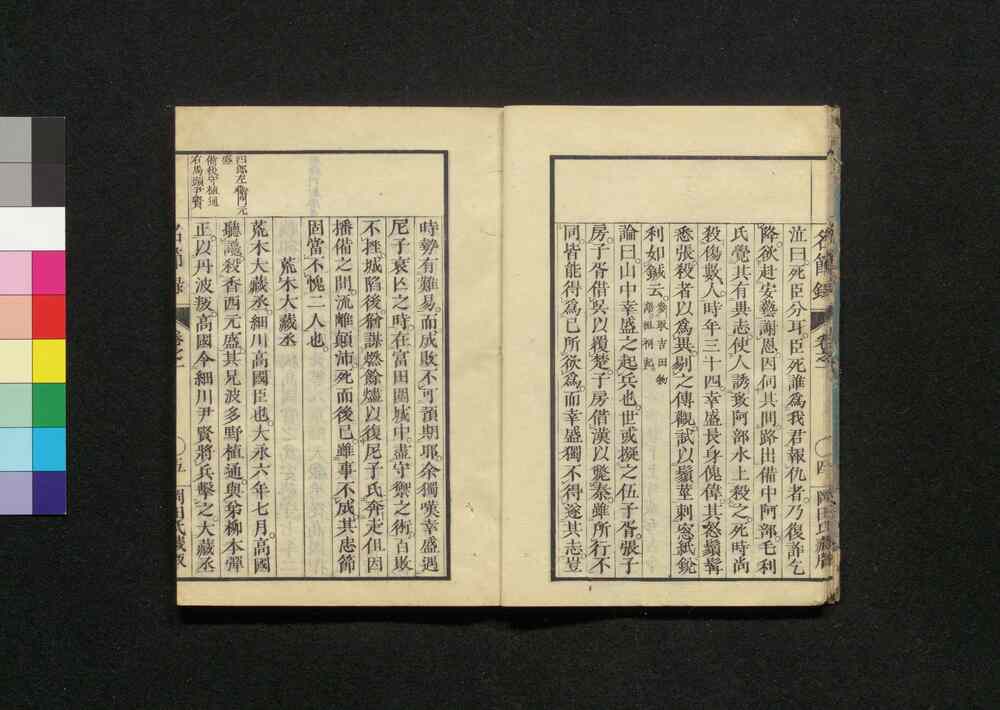 名節錄 卷之一 四 岡田氏藏版
泣曰死臣分耳臣死誰為我君報仇者乃復詐乞
降欲赴安藝謝恩因伺其間路出備中阿部毛利
氏覺其有異志使人誘致阿部水上殺之死時尚
殺傷數人時年三十四幸盛長身傀偉其怒鬚髯
悉張殺者以為異剔之傳觀試以鬚莖刺窓紙銳
利如鍼云參取吉田物語祖祠記
論曰山中幸盛之起兵也世或擬之伍子胥張子
房子胥借吳以覆楚子房借漢以斃秦雖所行不
同皆能得為己所欲為而幸盛獨不得遂其志豈
時勢有難易而成敗不可預期耶余獨嘆幸盛遇
尼子衰亡之時在富田圍城中盡守禦之術百敗
不挫城陷後猶謀燃餘燼以復尼子氏奔走但因
播備之間流離顛沛死而後已雖事不成其忠節
固當不愧二人也
荒木大藏丞
荒木大藏丞細川高國臣也大永六年七月高國
聽讒殺香西元盛其兄波多野植通與弟柳本彈
正以丹波叛高國令細川尹賢將兵擊之大藏丞
四郎左衛門元
盛
備後守植通
右馬頭尹賢
名節錄 卷之一 五 岡田氏藏版